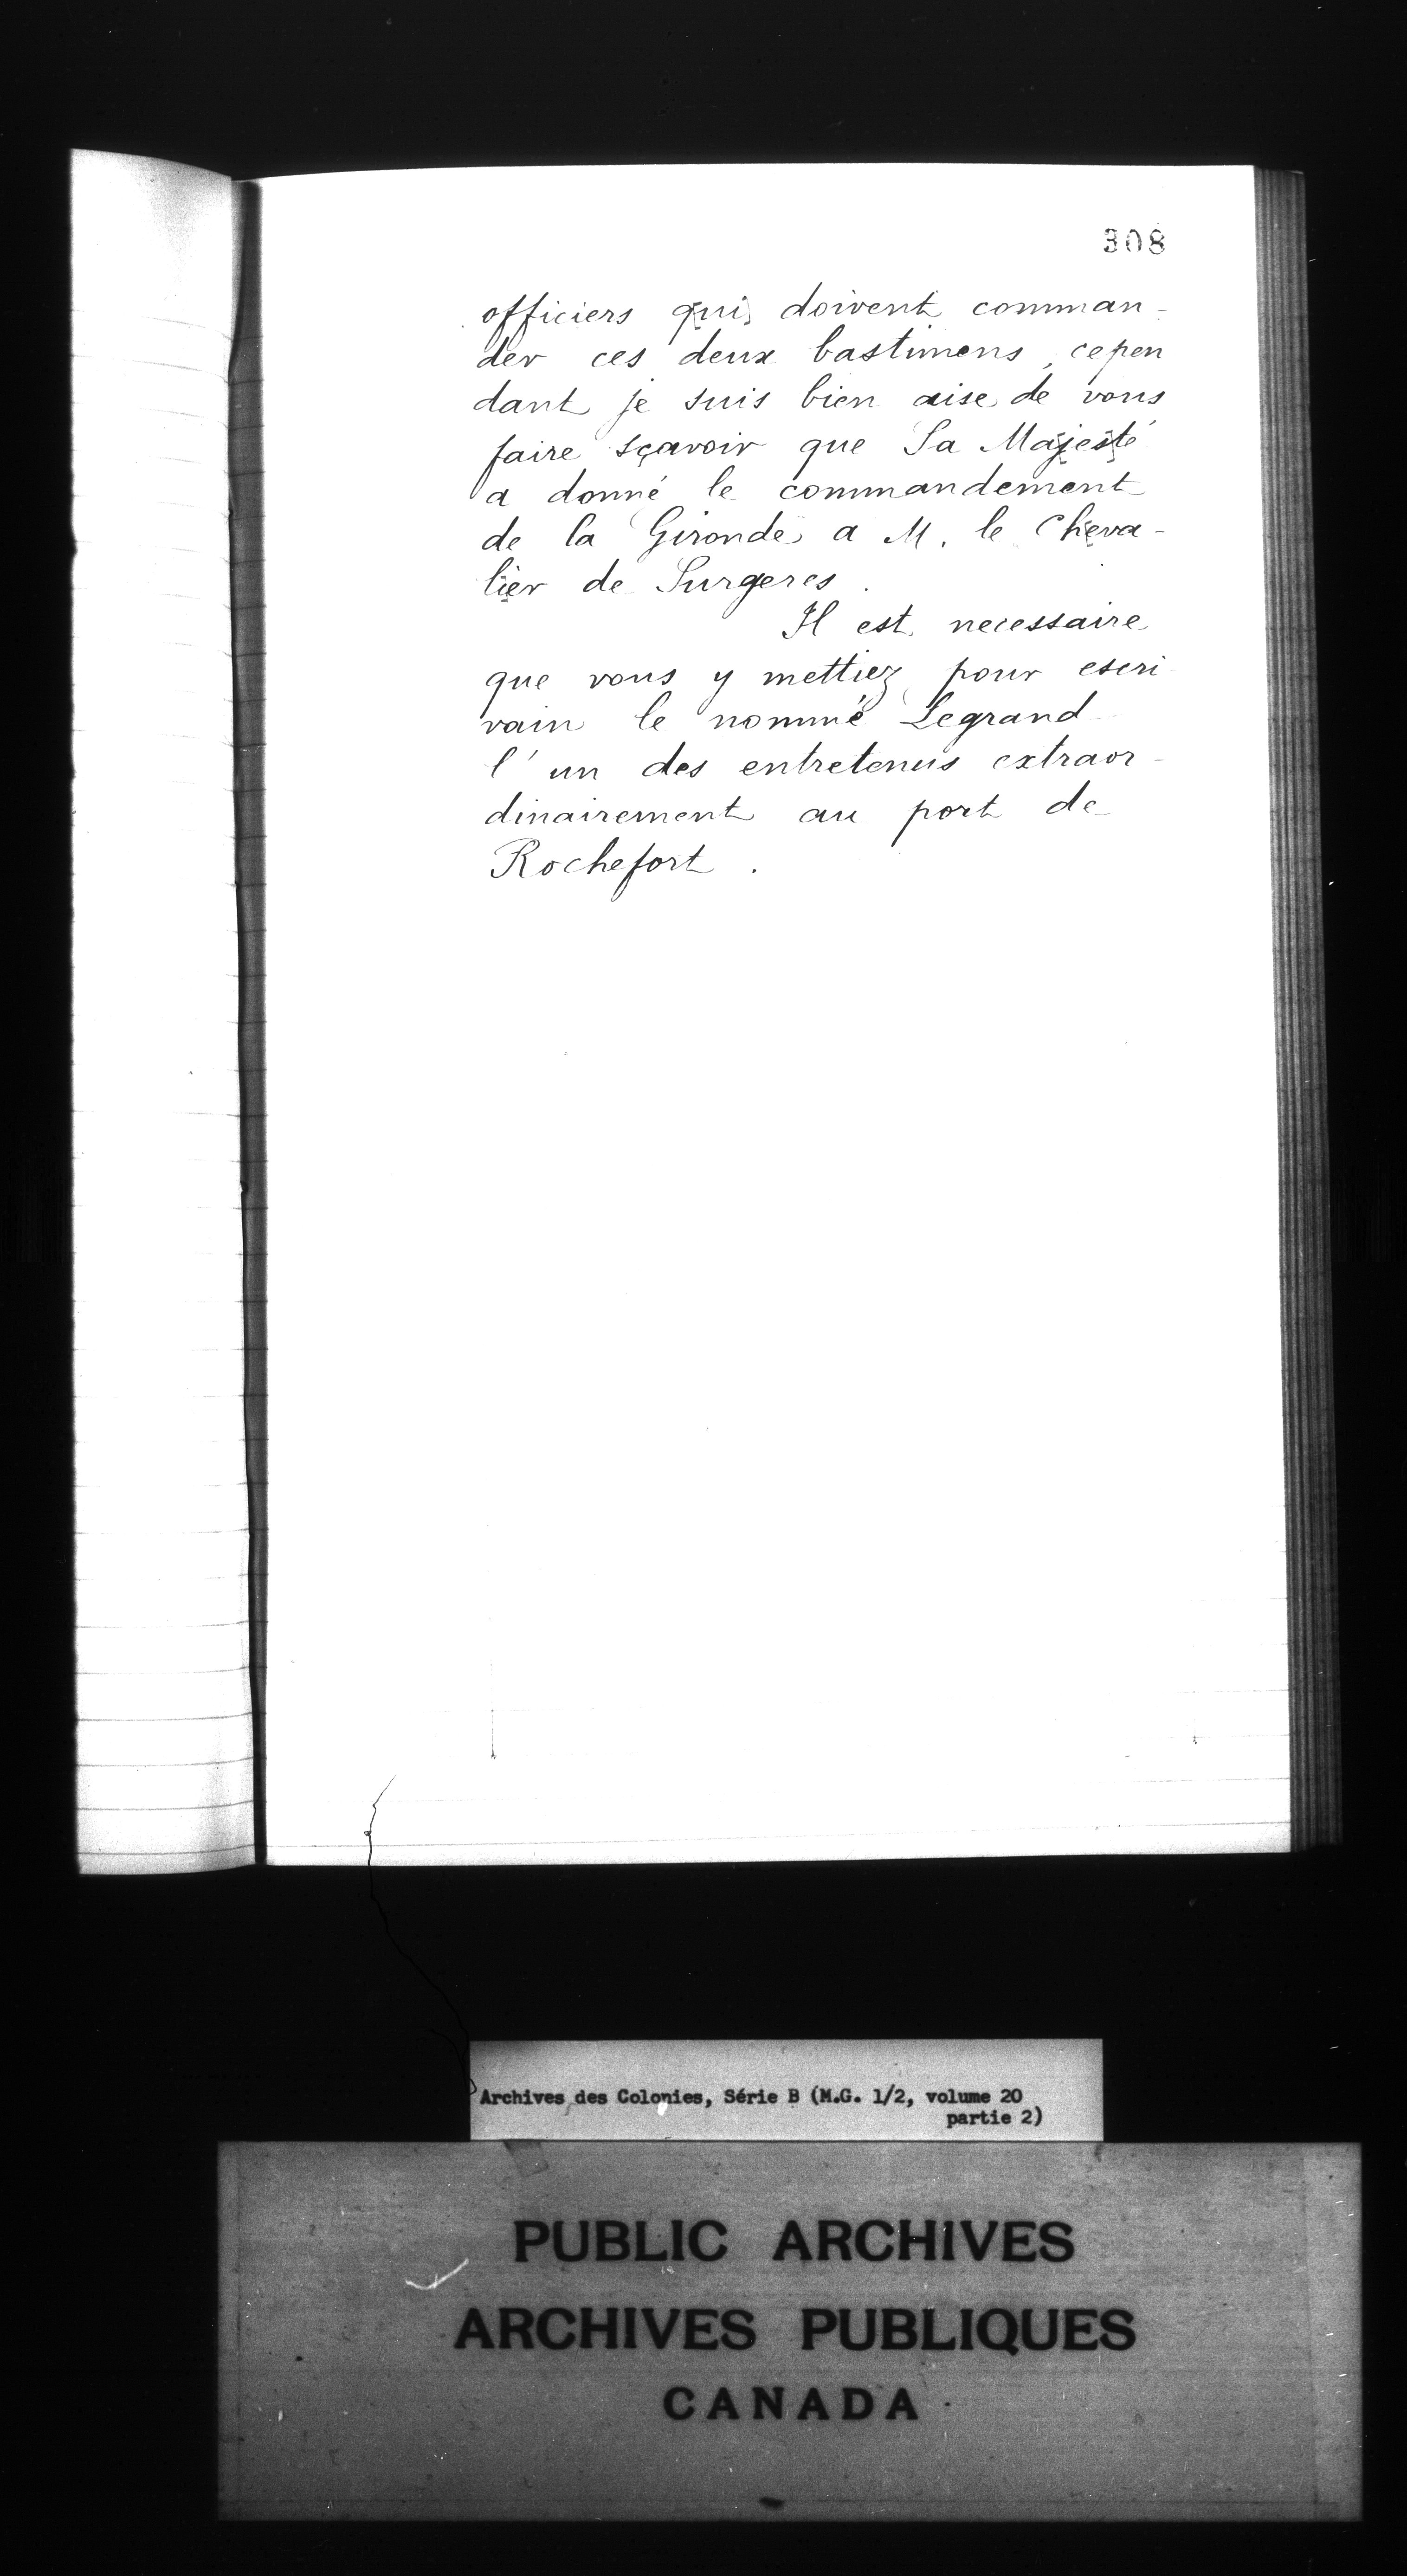 308
officiers qui doivent comman-
der ces deux bastimens, cepen
dant je suis bien aise de vous
faire sçavoir que Sa Majesté
a donné le commandement
de la Gironde a M. le Cheva-
lier de Surgeres.
Il est necessaire
que vous y mettiez pour escri-
vain le nommé Legrand
l'un des entretenus extraor-
dinairement au port de
Rochefort.
Archives des Colonies, Série B (M.G. 1/2, volume 20
partie 2)
PUBLIC ARCHIVES
ARCHIVES PUBLIQUES
CANADA